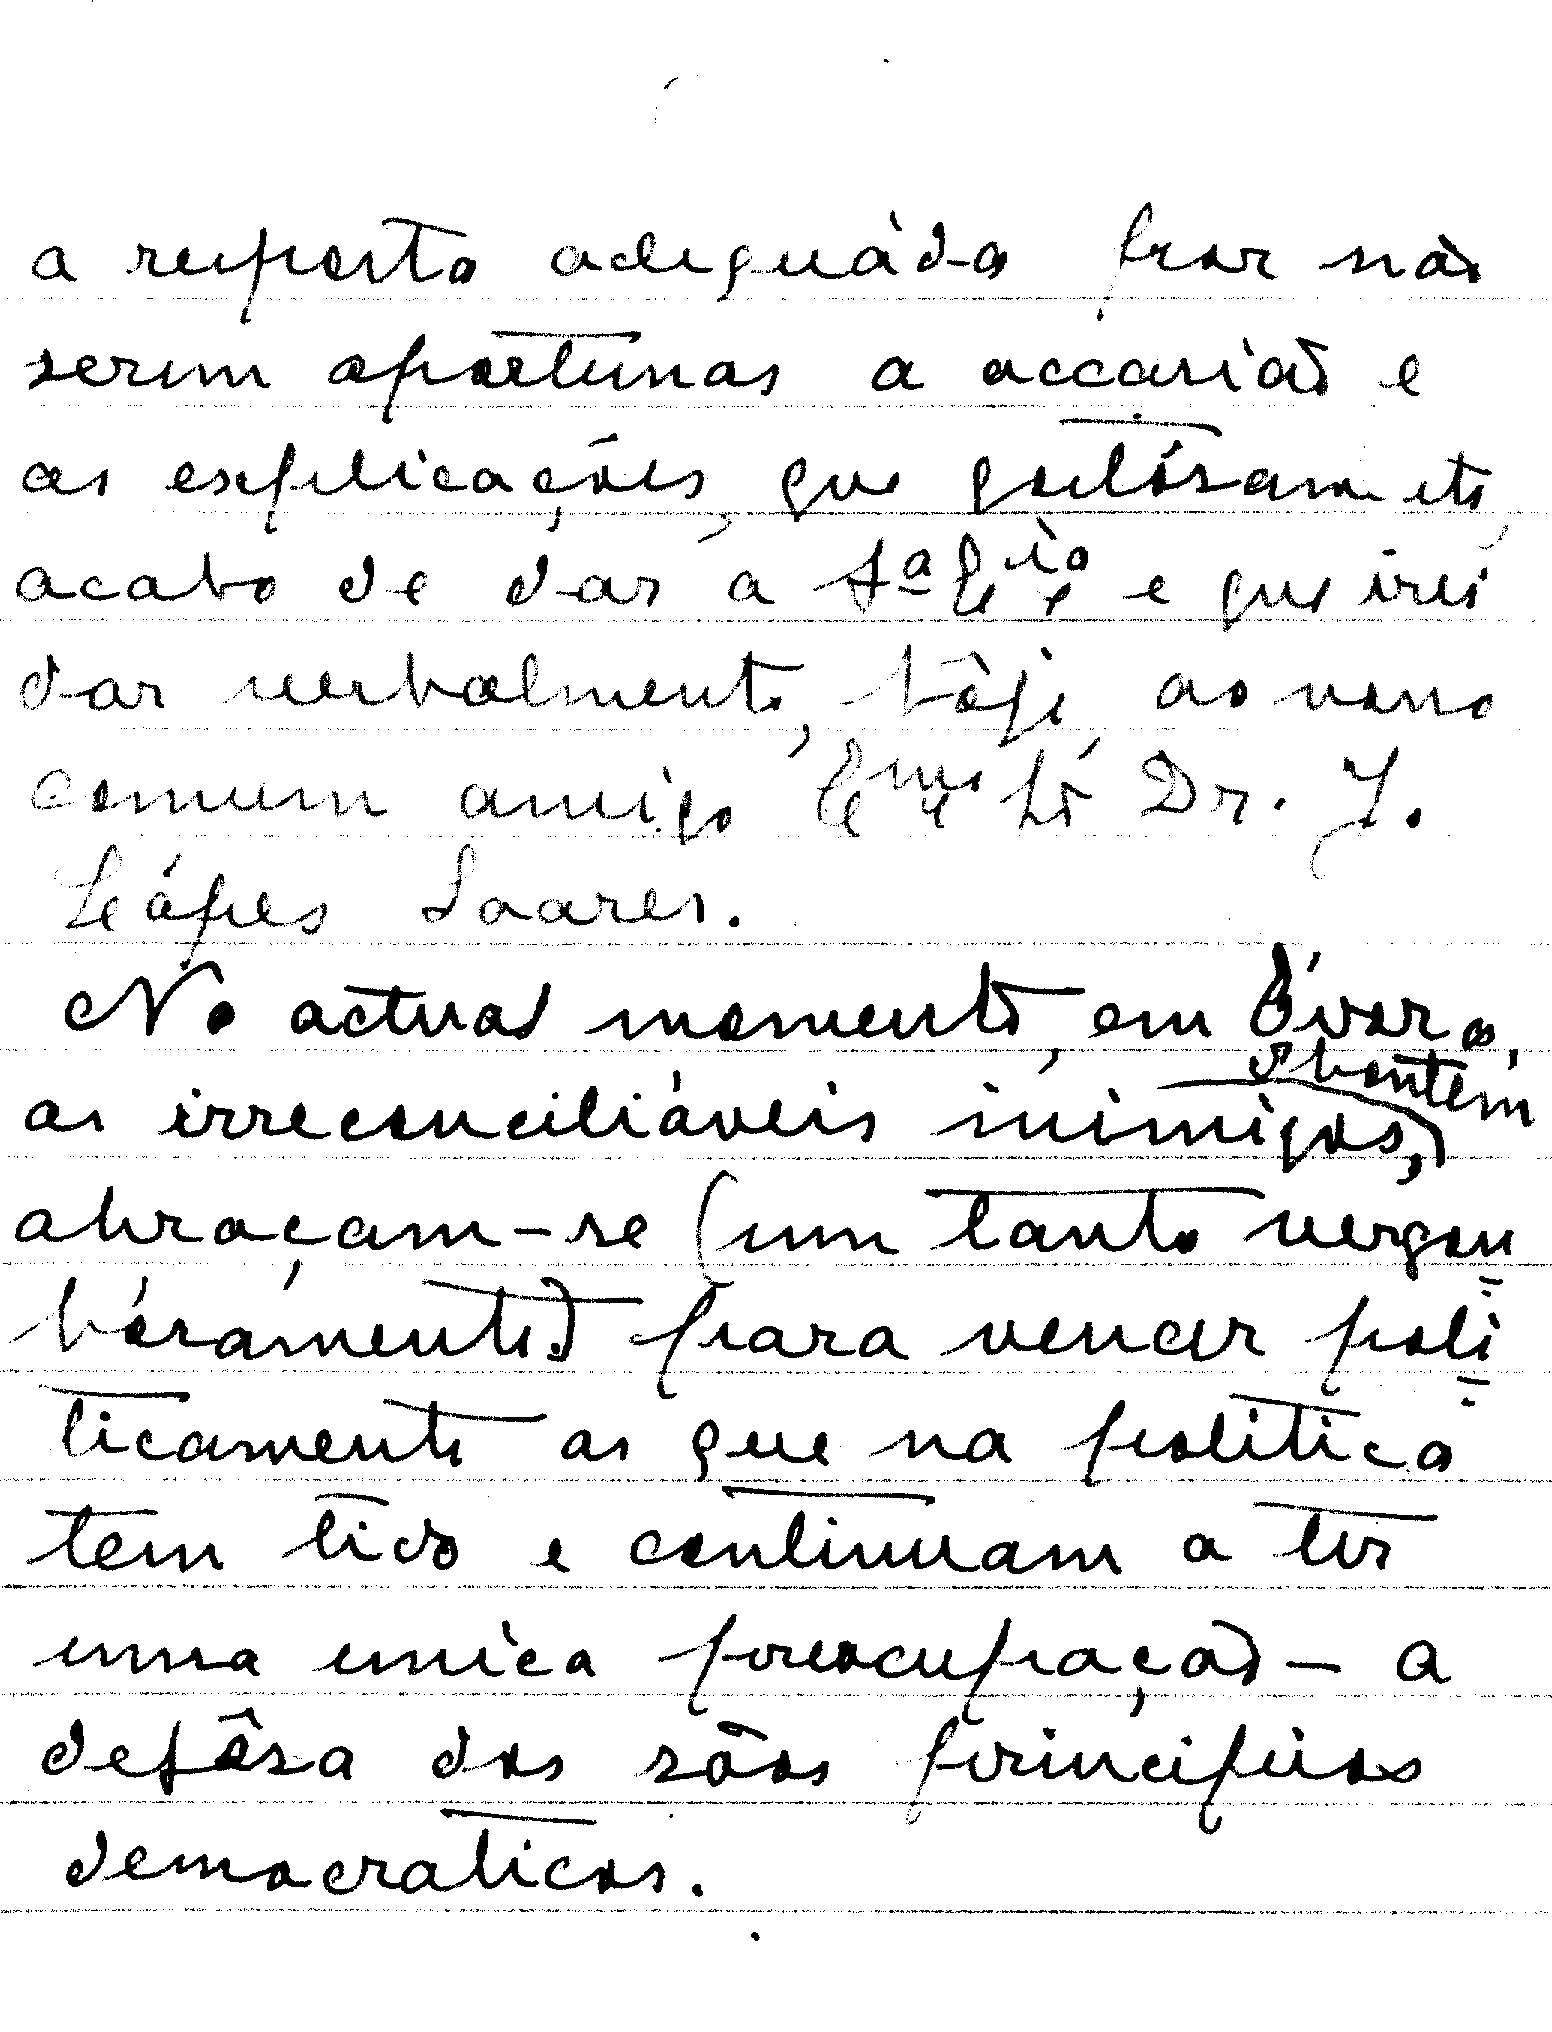 a resposta adequáda por não
serem oportunas a occasião e
as explicações, que gostósamente,
acabo de dar a S.ª Ex.cia e que irei
dar verbalmente, hôje, ao nosso
comum amigo Ex.mo Sr. Dr. J.
Lópes Soares.
No actual momento, em Évora,
os irreconciliáveis inimigos, d'hontem
abraçam-se (um tanto vergon-
hósamente) para vencer poli-
ticamente os que na politica
tem tido e continuam a ter
uma unica preocupação — a
defêsa dos sãos principios
democraticos.